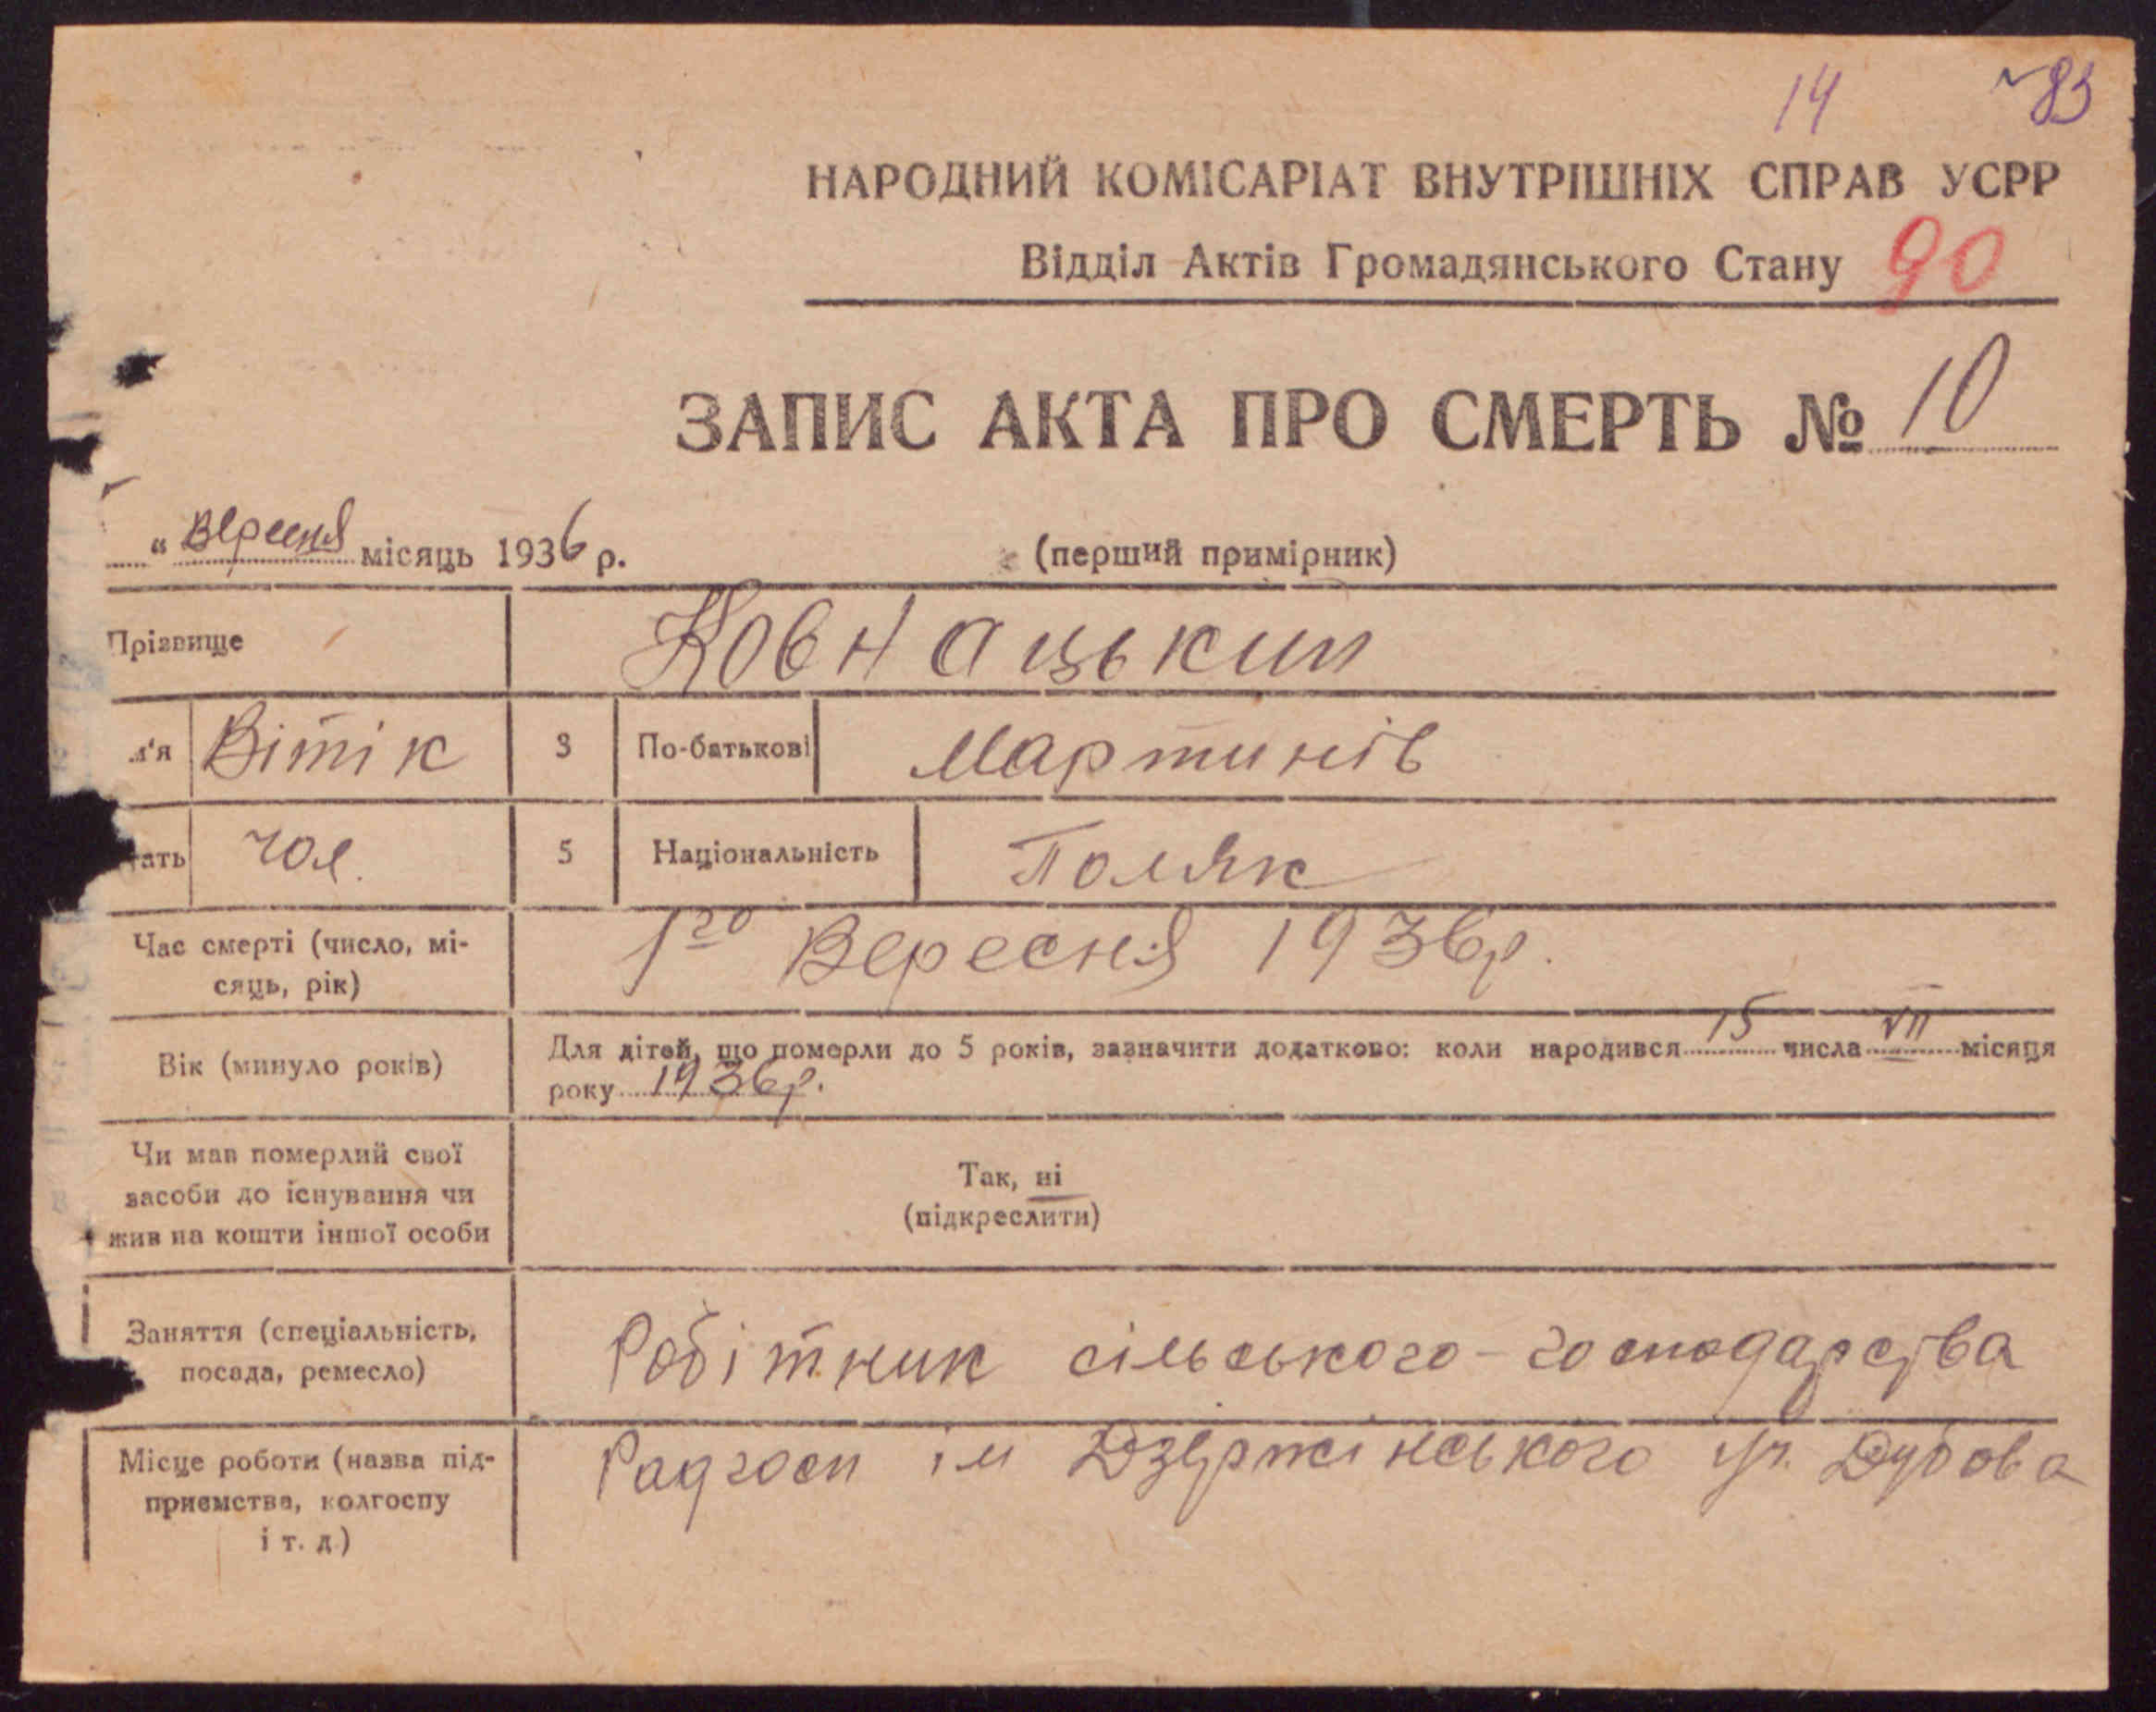 14 83
НАРОДНИЙ КОМІСАРІАТ ВНУТРІШНІХ СПРАВ УСРР
Відділ Актів Громадянського Стану 90
ЗАПИС АКТА ПРО СМЕРТЬ № 10
“ Вересня місяць 1936 р. (перший примірник)
Прізвище Ковнацький
м'я Вітік 3 По-батькові Мартинів
тать чол. 5 Національність Поляк
Час смерті (число, мі-
сяць, рік) 1го Вересня 1936р.
Вік (минуло років) Для дітей, що померли до 5 років, зазначити додатково: коли народився 15 числа VII місяця
року 1936р.
Чи мав померлий свої
засоби до існування чи
жив на кошти іншої особи
Так, ні
(підкреслити)
Заняття (спеціальність,
посада, ремесло) Робітник сільського-господарства
Місце роботи (назва під-
приємства, колгоспу
і т. д.) Радгосп ім Дзержінського Дубова